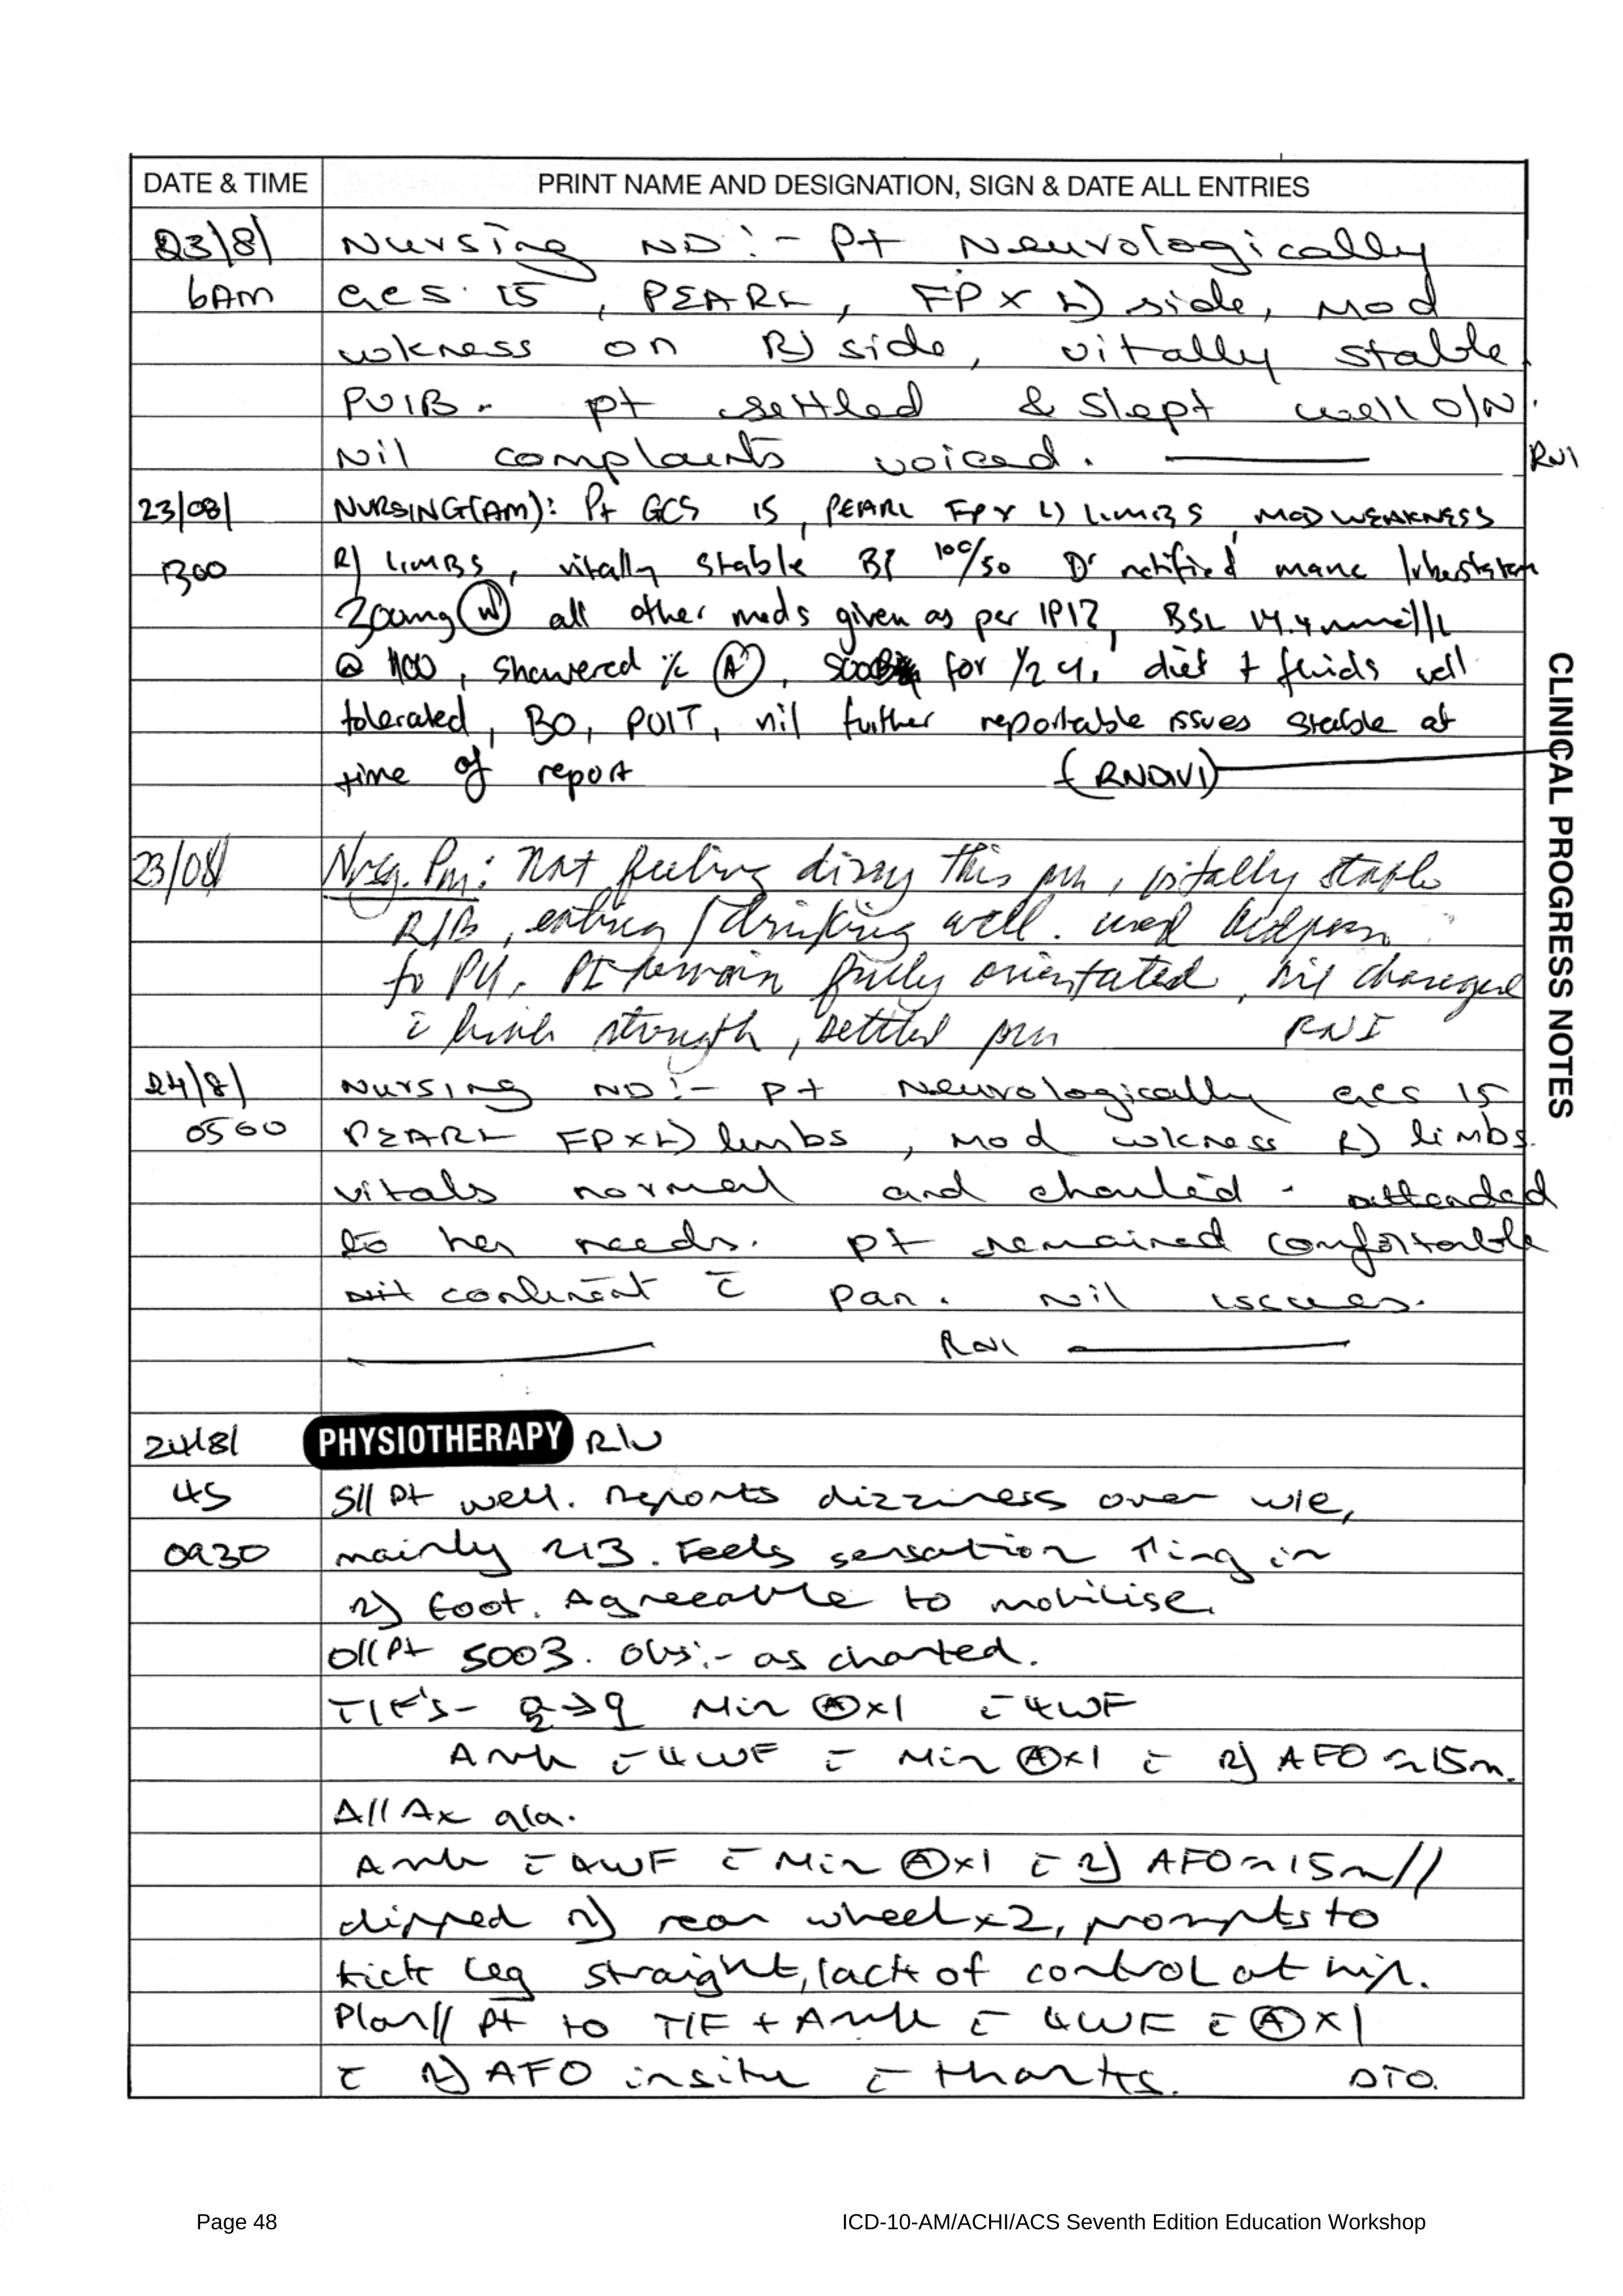 DATE & TIME PRINT NAME AND DESIGNATION, SIGN & DATE ALL ENTRIES
23/8/ Nursing ND:- Pt Neurologically
6AM GCS 15, PEARL, FP x L) side, Mod
wkness on R) side, vitally stable.
PUIB. pt settled & slept well O/N.
Nil complaints voiced. RN1
23/08/ NURSING(AM): Pt GCS 15, PEARL FP x L) LIMBS, MOD WEAKNESS
1300 R) LIMBS, vitally stable BP 100/50 Dr notified mane
300mg (W) all other meds given as per, BSL 14.4mmol/L
@ 1100, showered (A), for 1/2 diet + fluids well
tolerated, BO, PUIT, nil further reportable issues stable at
time of report (RNDIV1)
23/08/ Nrsg. Pm: Not feeling dizzy this pm, vitally stable
RIB, eating / drinking well. used bedpan
to PU. Pt remain fully orientated, nil changed
c̄ limb strength, settled pm RN1
24/8/ Nursing ND:- pt Neurologically GCS 15
0500 PEARL FP x L) limbs, Mod wkness R) limbs.
vitals normal and charted - attended
to her needs. pt remained comfortable
continent c̄ pan. Nil issues.
RN1
24/8/ PHYSIOTHERAPY R/V
45 S// Pt well. Reports dizziness over w/e,
0930 mainly 2/3. Feels sensation ↑ing in
R) foot. Agreeable to mobilise.
O// Pt SOOB. Obs:- as charted.
T/F's - → Min (A)x1 c̄ 4WF
Amb c̄ 4WF c̄ Min (A)x1 c̄ R) AFO ≈15m.
A// Ax a/a.
Amb c̄ 4WF c̄ Min (A)x1 c̄ R) AFO ≈15m//
clipped R) rear wheel x2, prompts to
kick leg straight, lack of control at hip.
Plan// Pt to T/F + Amb c̄ 4WF c̄ (A)x1
c̄ R) AFO insitu c̄ thanks. PTO.
CLINICAL PROGRESS NOTES
Page 48 ICD-10-AM/ACHI/ACS Seventh Edition Education Workshop